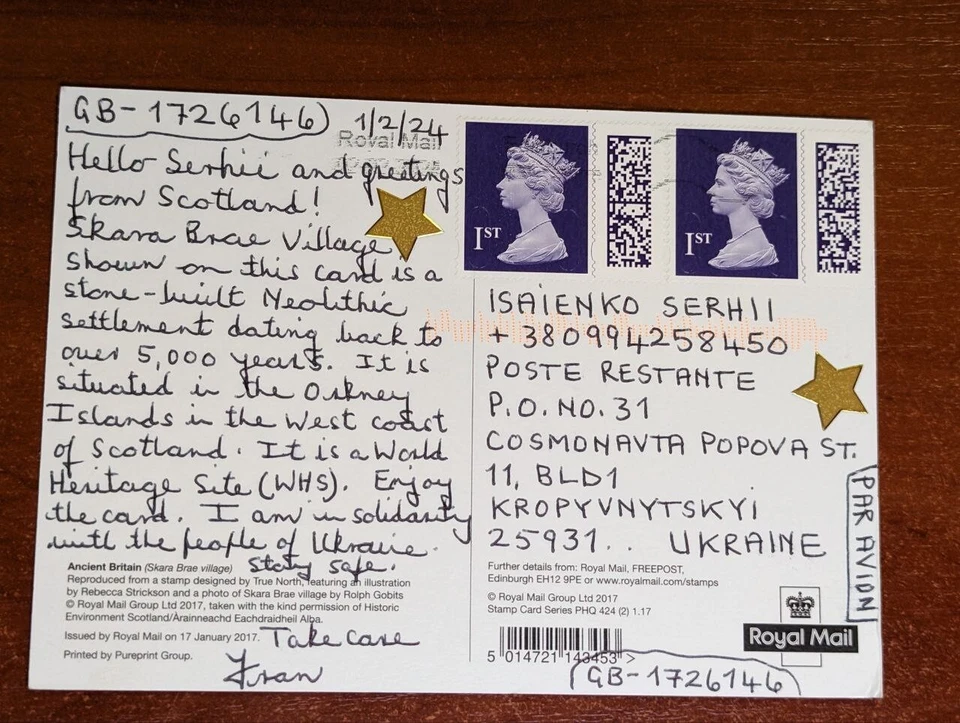 GB-1726146
1/2/24
Royal Mail
Hello Serhii and greetings
from Scotland!
Skara Brae Village
shown on this card is a
stone-built Neolithic
settlement dating back to
over 5,000 years. It is
situated in the Orkney
Islands in the West coast
of Scotland. It is a World
Heritage Site (WHS). Enjoy
the card. I am in solidarity
with the people of Ukraine.
Stay safe.
Ancient Britain (Skara Brae village)
Reproduced from a stamp designed by True North, featuring an illustration
by Rebecca Strickson and a photo of Skara Brae village by Rolph Gobits
© Royal Mail Group Ltd 2017, taken with the kind permission of Historic
Environment Scotland/Àrainneachd Eachdraidheil Alba.
Issued by Royal Mail on 17 January 2017.
Take care
Printed by Pureprint Group.
Fran
1ST
1ST
ISAIENKO SERHII
+380994258450
POSTE RESTANTE
P.O. NO. 31
COSMONAVTA POPOVA ST.
11, BLD1
KROPYVNYTSKYI
25931.. UKRAINE
PAR AVION
Further details from: Royal Mail, FREEPOST,
Edinburgh EH12 9PE or www.royalmail.com/stamps
© Royal Mail Group Ltd 2017
Stamp Card Series PHQ 424 (2) 1.17
Royal Mail
5 014721 143453 >
GB-1726146